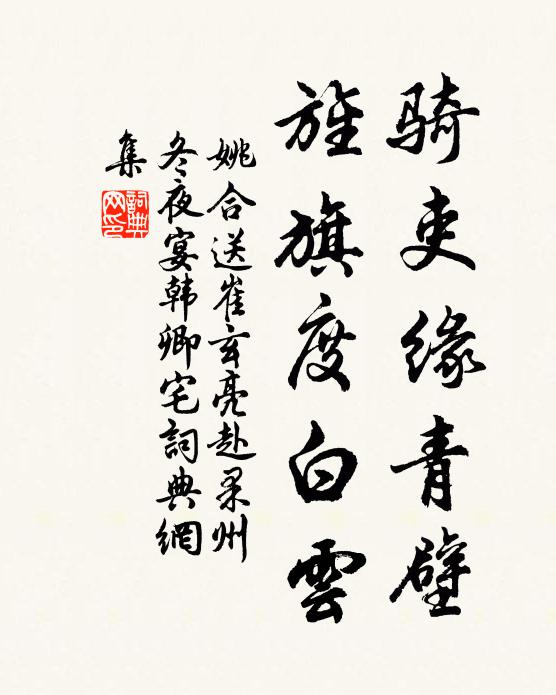 骑吏缘青壁
旌旗度白雲
姚合送崔玄亮赴果州
冬夜宴韩卿宅詞典網
集
詞典
网印